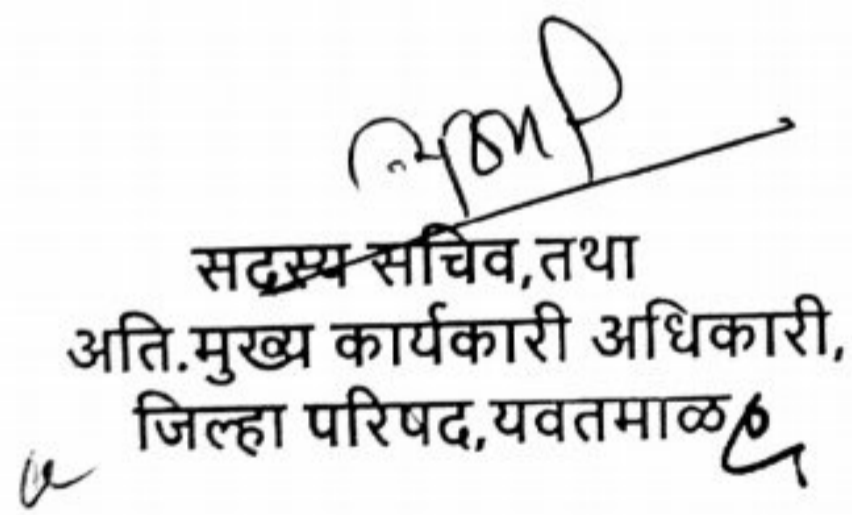 सदस्य सचिव,तथा
अति.मुख्य कार्यकारी अधिकारी,
जिल्हा परिषद,यवतमाळ